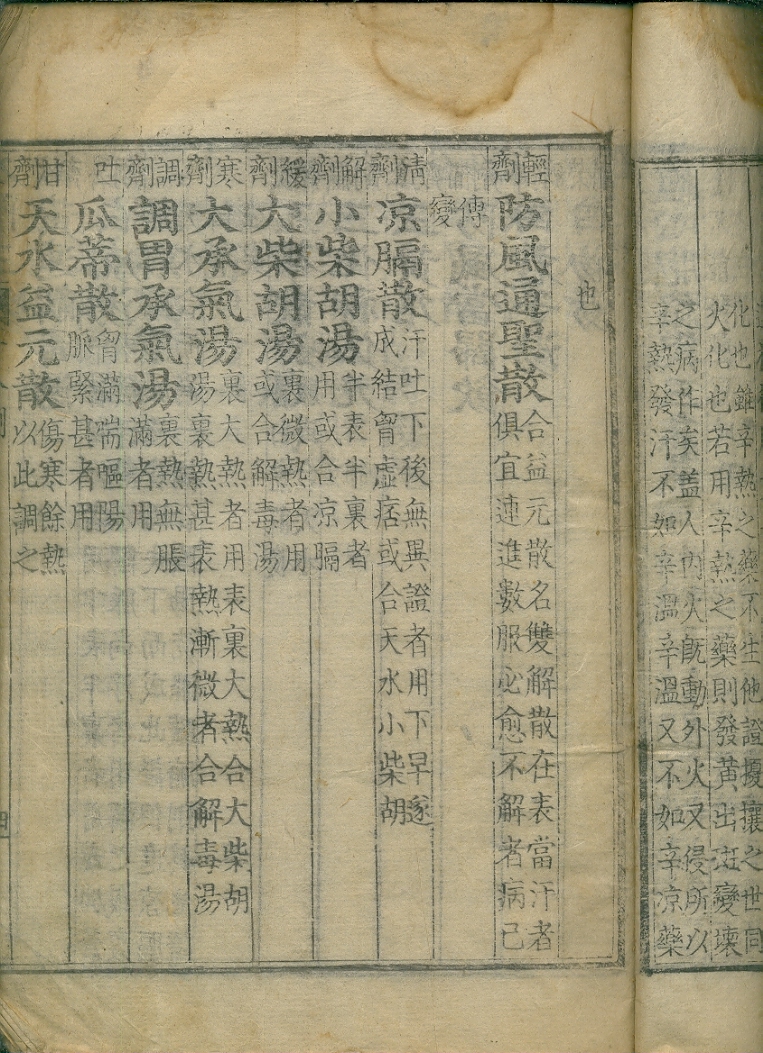 化也雖辛熱之藥不生他證擾攘之世同
火化也若用辛熱之藥則發黃出斑變壞
之病作矣盖人內火旣動外火又侵所以
辛熱發汗不如辛溫辛溫又不如辛凉藥
也
輕劑
防風通聖散
合益元散名雙解散在表當汗者
俱宜連進數服必愈不解者病已
傳變
淸劑
凉膈散
汗吐下後無異證者用下早遂
成結胷虛痞或合天水小柴胡
解劑
小柴胡湯
半表半裏者
用或合凉膈
緩劑
大柴胡湯
裏微熱者用
或合解毒湯
寒劑
大承氣湯
裏大熱者用表裏大熱合大柴胡
湯裏熱甚表熱漸微者合解毒湯
調劑
調胃承氣湯
裏熱無脹
滿者用
吐劑
瓜蒂散
胷滿喘嘔陽
脈緊甚者用
甘劑
天水益元散
傷寒餘熱
以此調之
四